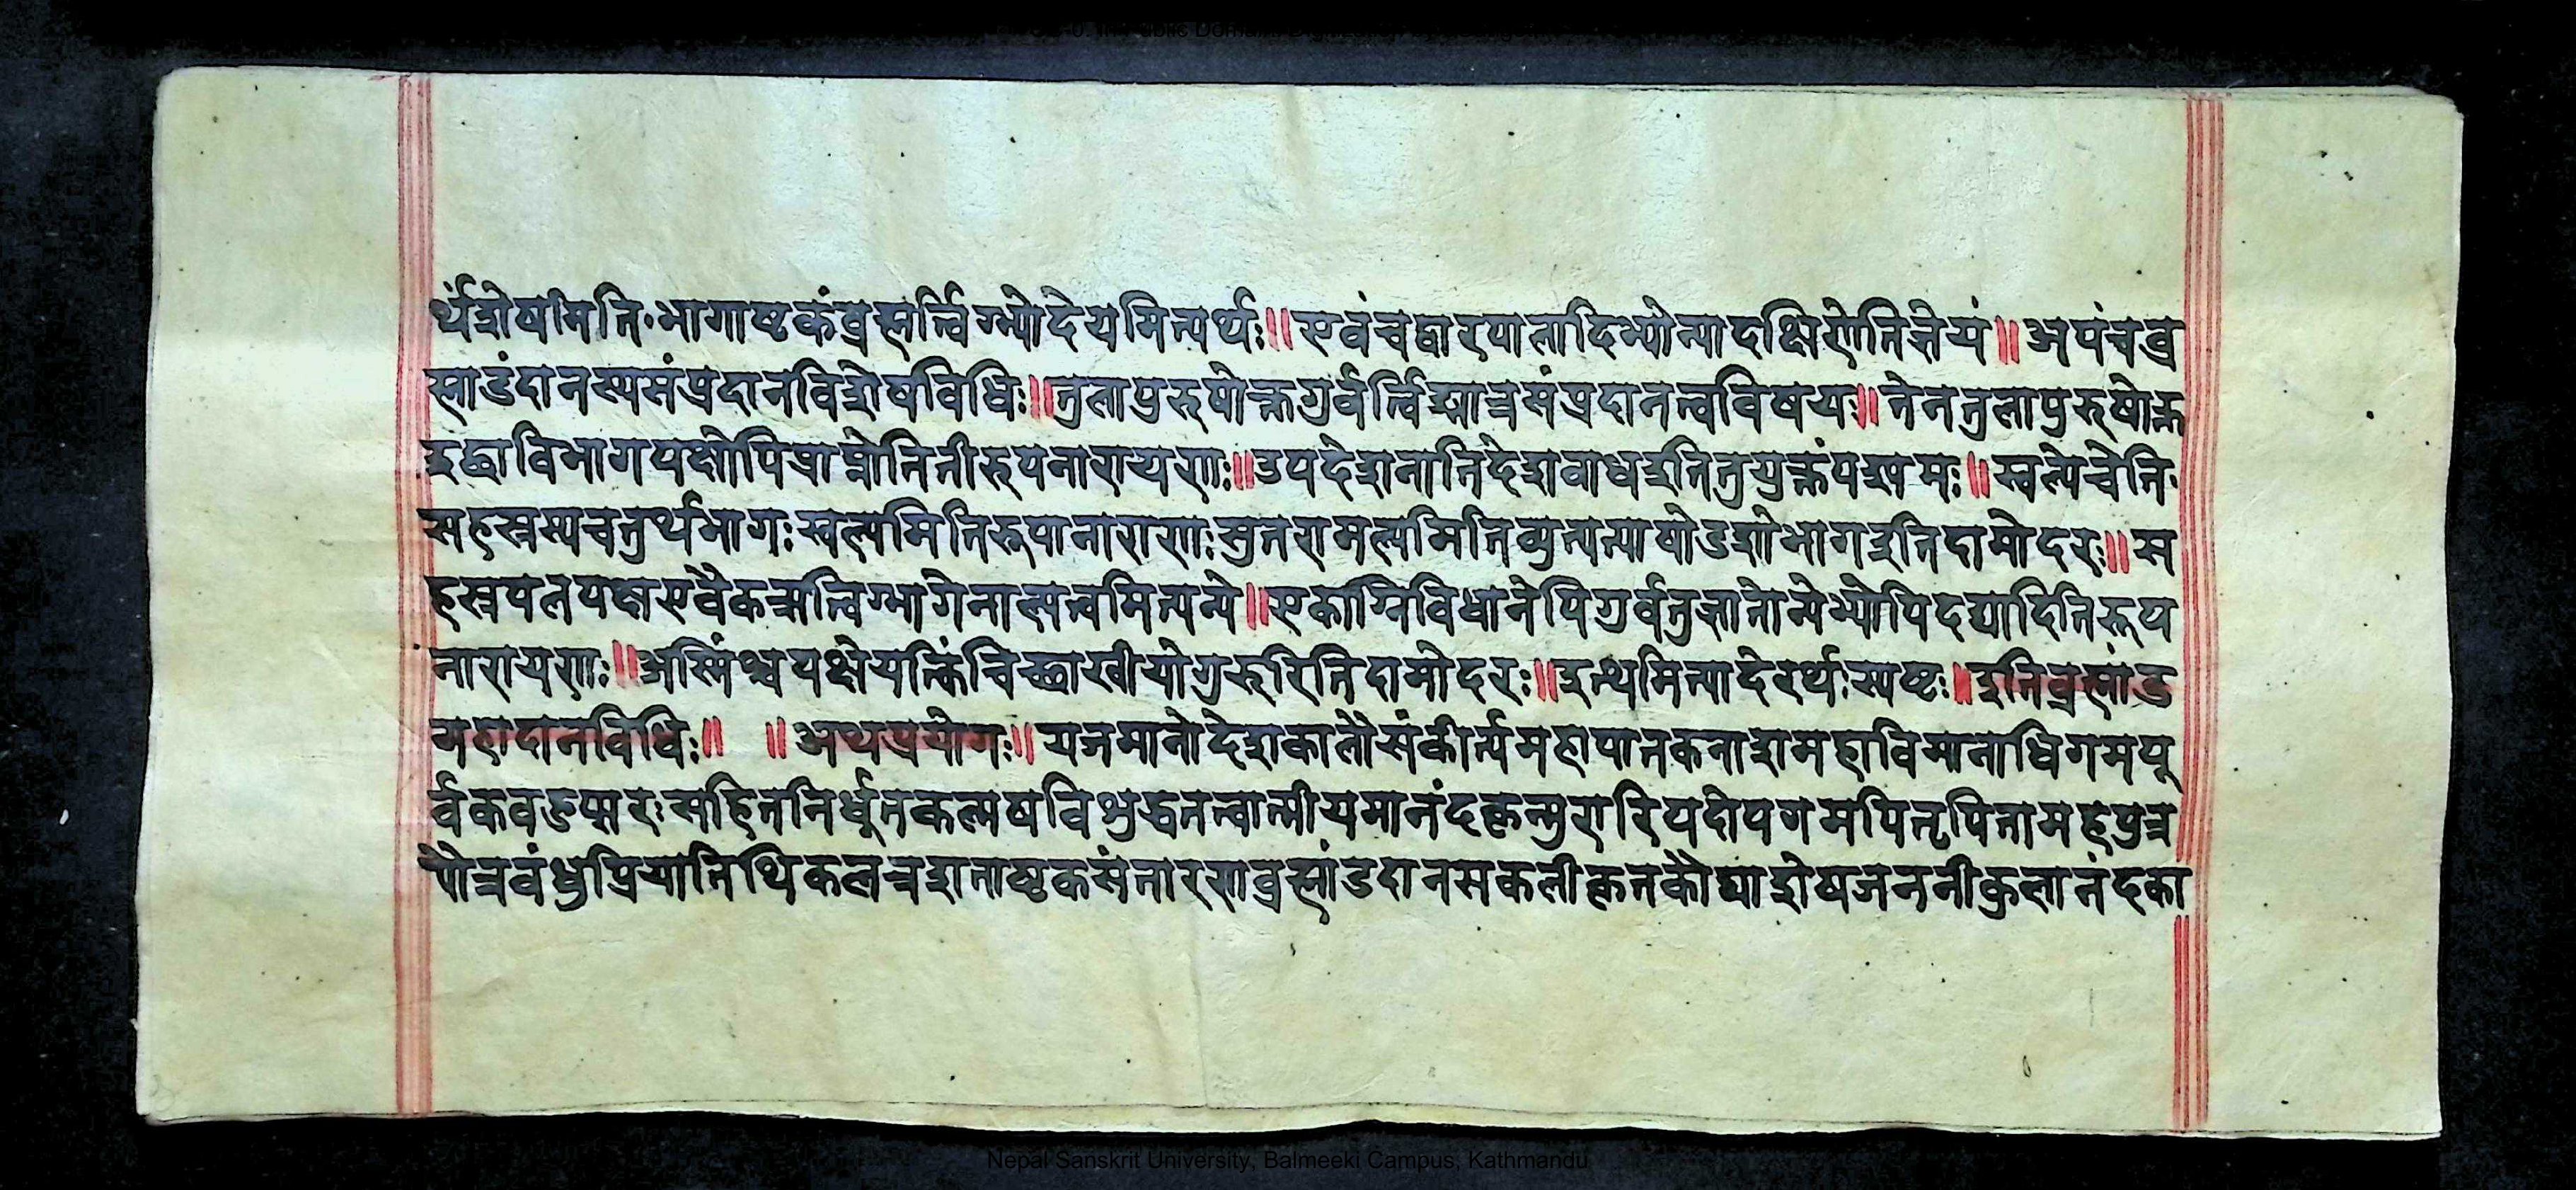 र्थंशेषमिति॰भागाष्टकंब्रह्मर्त्विग्भ्योदेयमित्यर्थः॥एवंचद्वारपालादिभ्योन्यादक्षिणेतिज्ञेयं॥अयंचब्र
ह्माडंदानस्यसंप्रदानविशेषविधिः॥तुलापुरुषोक्तगुर्वर्त्विङ्मात्रसंप्रदानत्वविषयः॥तेनतुलापुरुषोक्त
इछाविभागपक्षोपिप्राप्नोतितीरुपनारायणः॥उपदेशानातिदेशावाधइतितुयुक्तंपश्यामः॥स्वल्पेचेति॰
सहस्रस्यचतुर्थभागःस्वल्पमितिरूपानाराणःसुतरामल्पमितिव्युत्पत्याषोडशोभागइतिदामोदरः॥स
हस्रपलपक्षएवैकन्मर्त्विग्भागेनाल्पत्वमित्यन्ये॥एकाग्निविधानेपिगुर्वनुज्ञातोन्येभ्योपिदद्यादितिरूप
नारायणः॥अस्मिंश्चपक्षेयत्किंचिच्छाखीयोगुरुरितिदामोदरः॥इत्थमित्यादेरर्थःस्पष्टः॥इतिब्रह्मांड
महादानविधिः॥ ॥अथप्रयोगः॥यजमानोदेशकालौसंकीर्त्यमहापातकनाशमहाविमानाधिगमपू
र्वकवङप्सरःसहितनिर्धूतकल्मषविशुद्धतत्वात्मीयमानंदकृन्मुरारिपदोपगमपितृपितामहपुत्र
पौत्रबंधुप्रियातिथिकलत्रशताष्टकसंतारणब्रह्मांडदानसकलीकृतकौघाशेषजननीकुलानंदका
Nepal Sanskrit University, Balmeeki Campus, Kathmandu